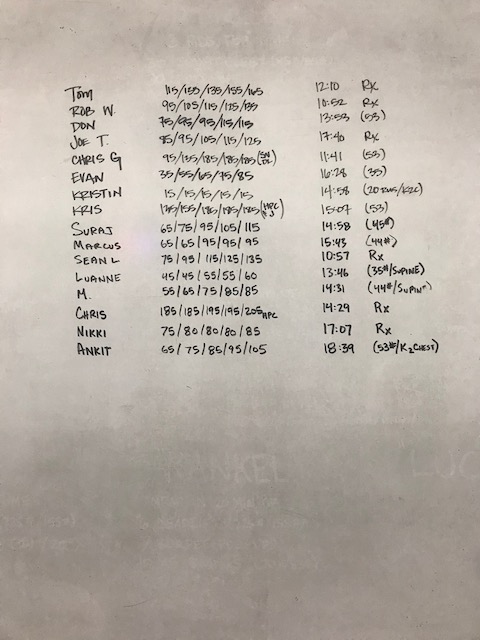 Tom 115/135/135/155/165 12:10 Rx
ROB W. 95/105/115/125/135 10:52 Rx
DON 75/95/95/115/115 13:53 (53)
JOE T. 85/95/105/115/125 17:40 Rx
CHRIS G 95/135/185/185/185 11:41 (53)
EVAN 35/55/65/75/85 16:28 (35)
KRISTIN 15/15/15/15/15 14:58
KRIS 15:07 (53)
SURAJ 65/75/95/105/115 14:58 (45#)
MARCUS 65/65/95/95/95 15:43 (44#)
SEAN L 75/95/115/125/135 10:57 Rx
LUANNE 45/45/55/55/60 13:46 (35#/SUPINE)
M. 55/65/75/85/85 14:31 (44#/SUPINE)
CHRIS 185/185/195/195/205 HPC 14:29 Rx
NIKKI 75/80/80/80/85 17:07 Rx
ANKIT 65/75/85/95/105 18:39 (53#/K2CHEST)